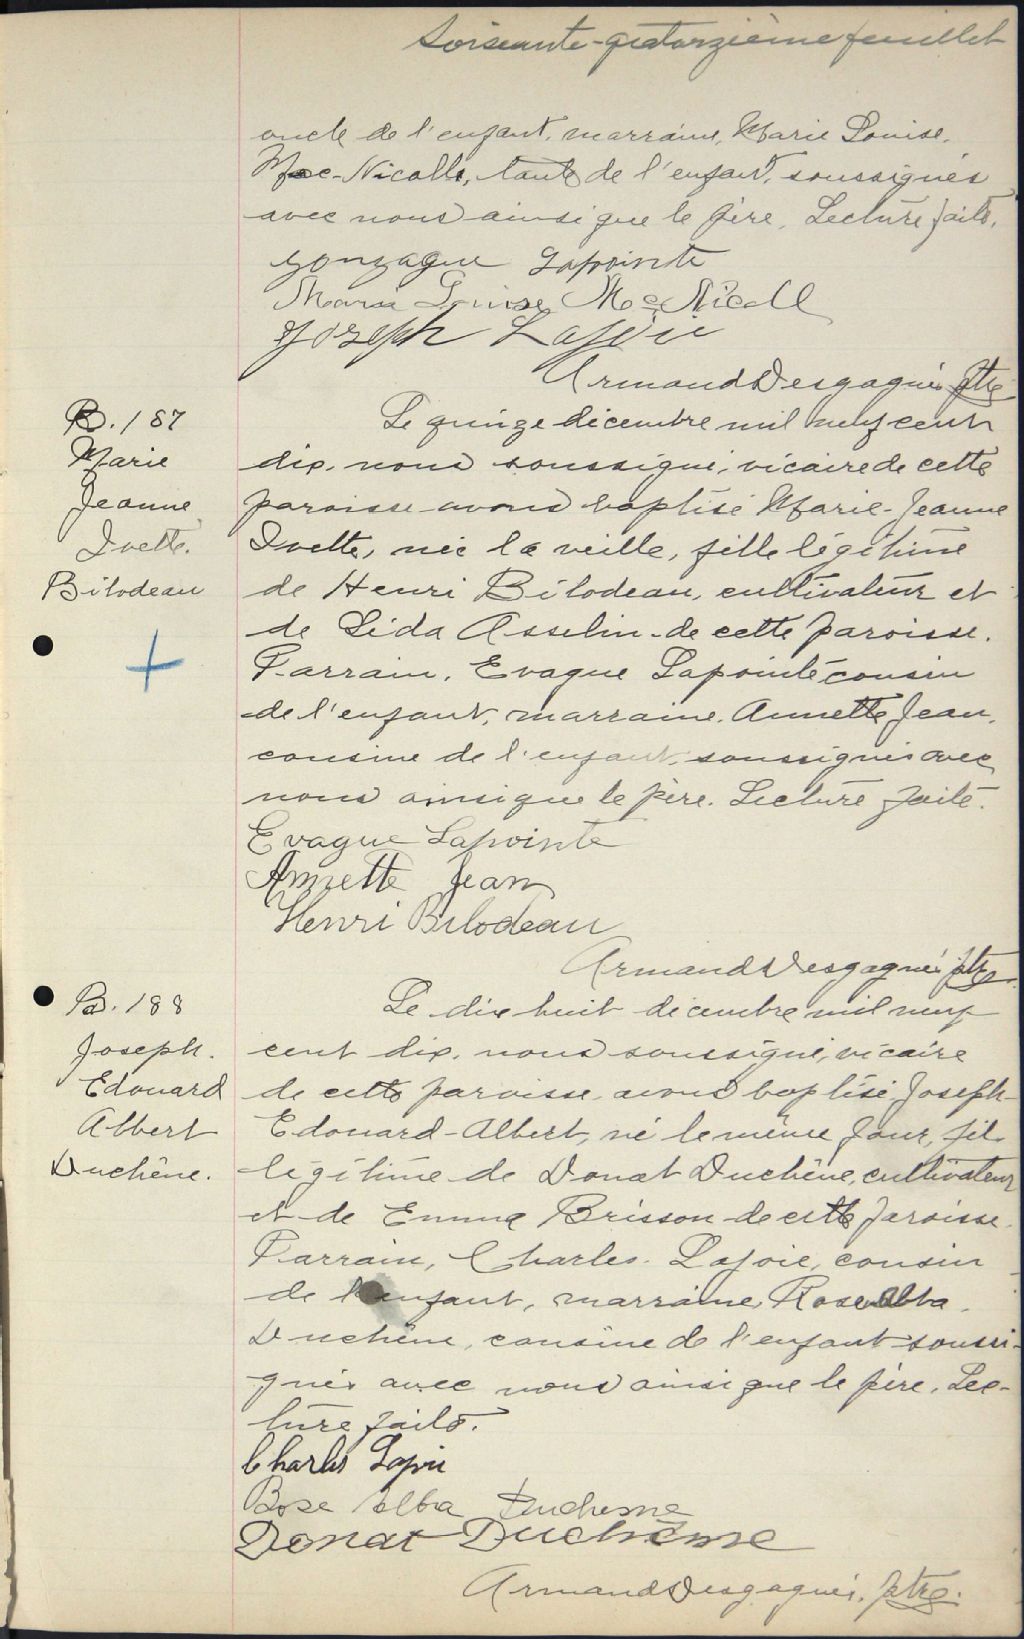 Soixante-quatorzième feuillet
oncle de l'enfant, marraine, Marie Louise
Mac-Nicolls, tante de l'enfant, soussignés
avec nous ainsi que le père. Lecture faite.
Gonzague Lapointe
Maria Louise McNicoll
Joseph Lajoie
Armand Desgagné ptre
B. 187
Marie
Jeanne
Ivette.
Bilodeau
Le quinze décembre mil neuf cent
dix, nous soussigné, vicaire de cette
paroisse avons baptisé Marie-Jeanne
Ivette, née la veille, fille légitime
de Henri Bilodeau, cultivateur et
de Lida Asselin de cette paroisse.
Parrain, Evague Lapointe cousin
de l'enfant, marraine, Annette Jean,
cousine de l'enfant, soussignés avec
nous ainsi que le père. Lecture faite.
Evague Lapointe
Annette Jean
Henri Bilodeau
Armand Desgagné ptre
B. 188
Joseph.
Edouard
Albert
Duchêne.
Le dix huit décembre mil neuf
cent dix, nous soussigné, vicaire
de cette paroisse avons baptisé Joseph-
Edouard-Albert, né le même jour, fils
légitime de Donat Duchêne, cultivateur
et de Emma Brisson de cette paroisse.
Parrain, Charles Lajoie, cousin
de l'enfant, marraine, Rose Alba
Duchêne, cousine de l'enfant soussi-
gnés avec nous ainsi que le père. Lec-
ture faite.
Charles Lajoie
Rose Alba Duchesne
Donat Duchêsne
Armand Desgagné, ptre.